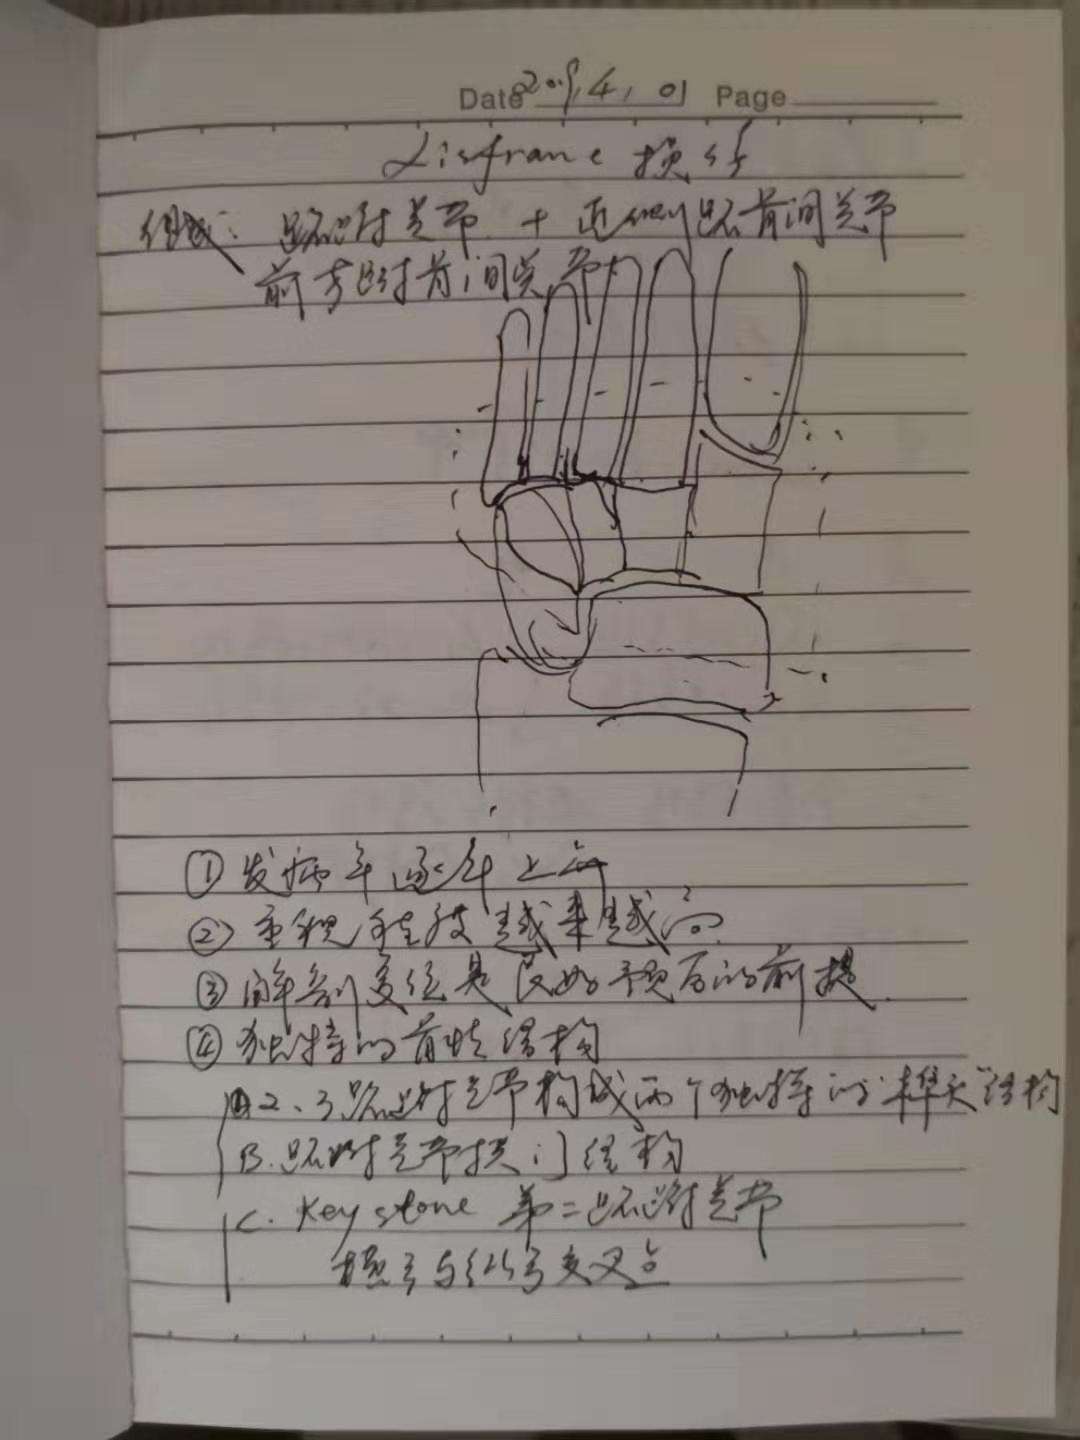 Date 2019.4.01 Page
Lisfranc 损伤
组成: 跖跗关节 + 近侧跖骨间关节
前方跗骨间关节
① 发病率逐年上升
② 重视程度越来越高
③ 解剖复位是良好预后的前提
④ 独特的骨性结构
A 2、3跖跗关节构成两个独特的“榫头”结构
B. 跖跗关节拱门结构
C. Keystone 第二跖跗关节
横弓与纵弓交叉点